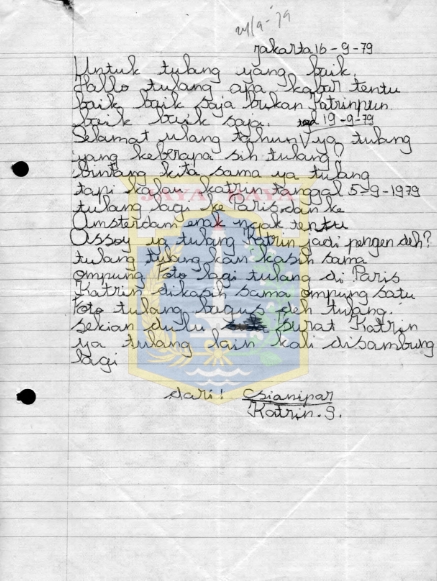 24/9-'79
Jakarta 16-9-79
Untuk tulang yang baik.
Hallo tulang apa kabar tentu
baik baik saja bukan Katrinpun
baik baik saja. 19-9-79
Selamat ulang tahun V ya tulang
yang keberapa sih tulang?
bintang kita sama ya tulang
tapi kalau Katrin tanggal 5-9-1979
tulang lagi ke Paris dan ke
Amsterdam enak enak tentu
Assoy ya tulang Katrin jadi pengen deh?
tulang tulang kan kasih sama
ompung Foto lagi tulang di Paris
Katrin dikasih sama ompung satu
Foto tulang bagus deh tulang.
sekian dulu surat Katrin
ya tulang lain kali disambung
lagi
dari! Csianipar
Katrin.S.
JAYA RAYA